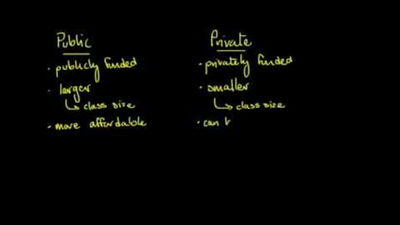 Public
Private
• publicly funded
• privately funded
• larger
• smaller
↳ class size
↳ class size
• more affordable
• can t